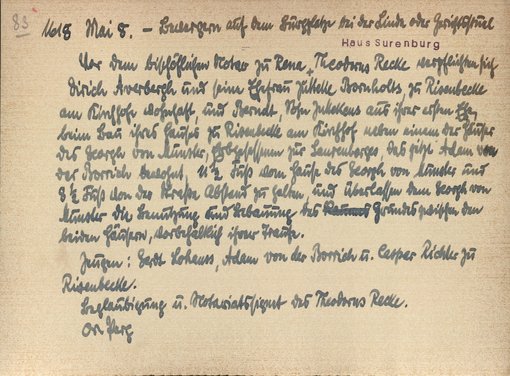 83
1618 Mai 8. – Bevergern auf dem Burgplatze bei der Linde oder Gerichtsstuel
Haus Surenburg
Vor dem bischöflichen Notar zu Rena, Theodorus Recke verpflichten sich
Dirich Averbergh und seine Ehefrau Jutteke Bornholts, zu Risenbecke
am Kirchhofe wohnhaft, und Berndt, Sohn Juttekens aus ihrer ersten Ehe,
beim Bau ihres Hauses zu Risenbecke am Kirchhof neben einem der Häuser
des Georgh von Munster, Erbgesessenen zur Surenborgh, das jetzt Adam von
der Borrich bewohnt, 1 1/2 Fuß vom Hause des Georgh von Munster und
8 1/2 Fuß von der Straße Abstand zu halten, und überlassen dem Georgh von
Munster die Benutzung und Bebauung des Grundes zwischen den
beiden Häusern, vorbehaltlich ihrer Traufe.
Zeugen: Gerdt Lohaus, Adam von der Borrich u. Caspar Richter zu
Risenbecke.
Beglaubigung u. Notariatssignet des Theodorus Recke.
Or. Perg